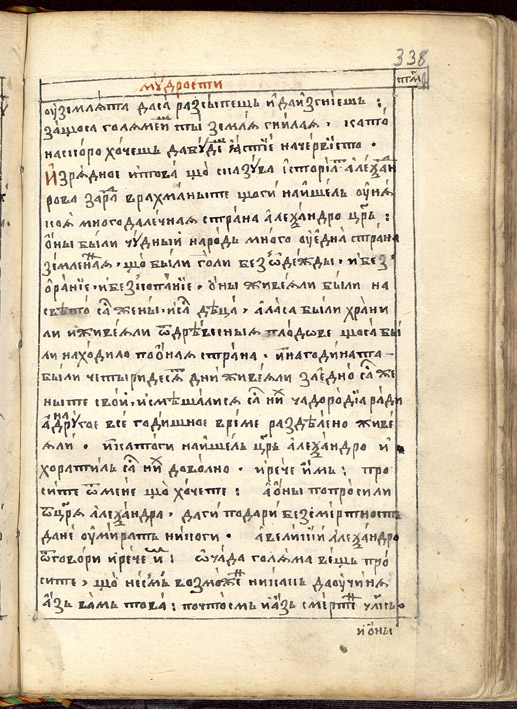 338
мꙋ́дрости
ꙋ҆землѧ́та даса разсы́пешъ и҆ даи҆згнїе́шъ :
за́щоса голѧ́меешъ ты̀ землѧ̀ гни́лаѧ , ка́то
наско́ро хо́чешъ дабꙋ́дешъ ꙗ҆́стїе на че́рвїето .
И҆зрѧ́дное и҆ това̀ що ска́зꙋва и҆сторїата а҆леѯан
рова зара̀ врахма́ныте щоги наи҆ше́лъ ꙋ҆ нѣ
коѧ̀ многодале́чнаѧ страна̀ а҆леѯа́ндро цр҃ь :
ѻ҆ны̀ бы́ли чꙋ́дный наро́дъ мно́го ꙋ҆ є҆дна̀ страна̀
зе́мленаѧ , що бы́ли го́ли безъ ѡ҆де́жды , и҆ без
ѻ҆ра́нїе , и҆ безкопа́нїе , ѻ҆ны̀ живеѧ́ли бы́ли на
свѣ́то са жены̀ , и҆ са дѣца̀ , а҆ ласа бы́ли храни
ли и҆ живеѧ́ли ѿ дрѣ́весныѧ пло́дове щоса бы́
ли нахо́дило по ѻ҆наѧ страна̀ . и҆ на годи́ната
бы́ли четы́ридесѧт днѝ живеѧ́ли зае́дно са же
ны́те своѝ , и҆ смѣша́лисѧ са ни́х чадоро́дїа ра́ди
а҆ на дрꙋ́гое все годи́шное вре́ме разде́лено живе
ѧ́ли . и҆ като́ги наи҆ше́лъ цр҃ь а҆леѯа́ндро и҆
хора́тилъ са ни́х дово́лно . и҆ рече и҆́мъ : про
си́те ѿ ме́не що хо́чете : а҆ ѻ҆ны̀ попроси́ли
ѿ цр҃ѧ а҆леѯа́ндра , да ги пода́ри безсме́ртность
да не ꙋ҆мира́тъ ни́коги . а҆ вели́кїй а҆леѯа́ндро
ѿговори и҆ рече и҆м : ѡ҆ ча́да голѧ́ма ве́щь про
си́те , що не́смь возмо́жен ни́какъ да ꙋ҆чинѧ̀
а҆́зъ ва́мъ това̀ : почто́емь и҆ а҆́зъ сме́ртен
и҆ ѻ҆ны̀